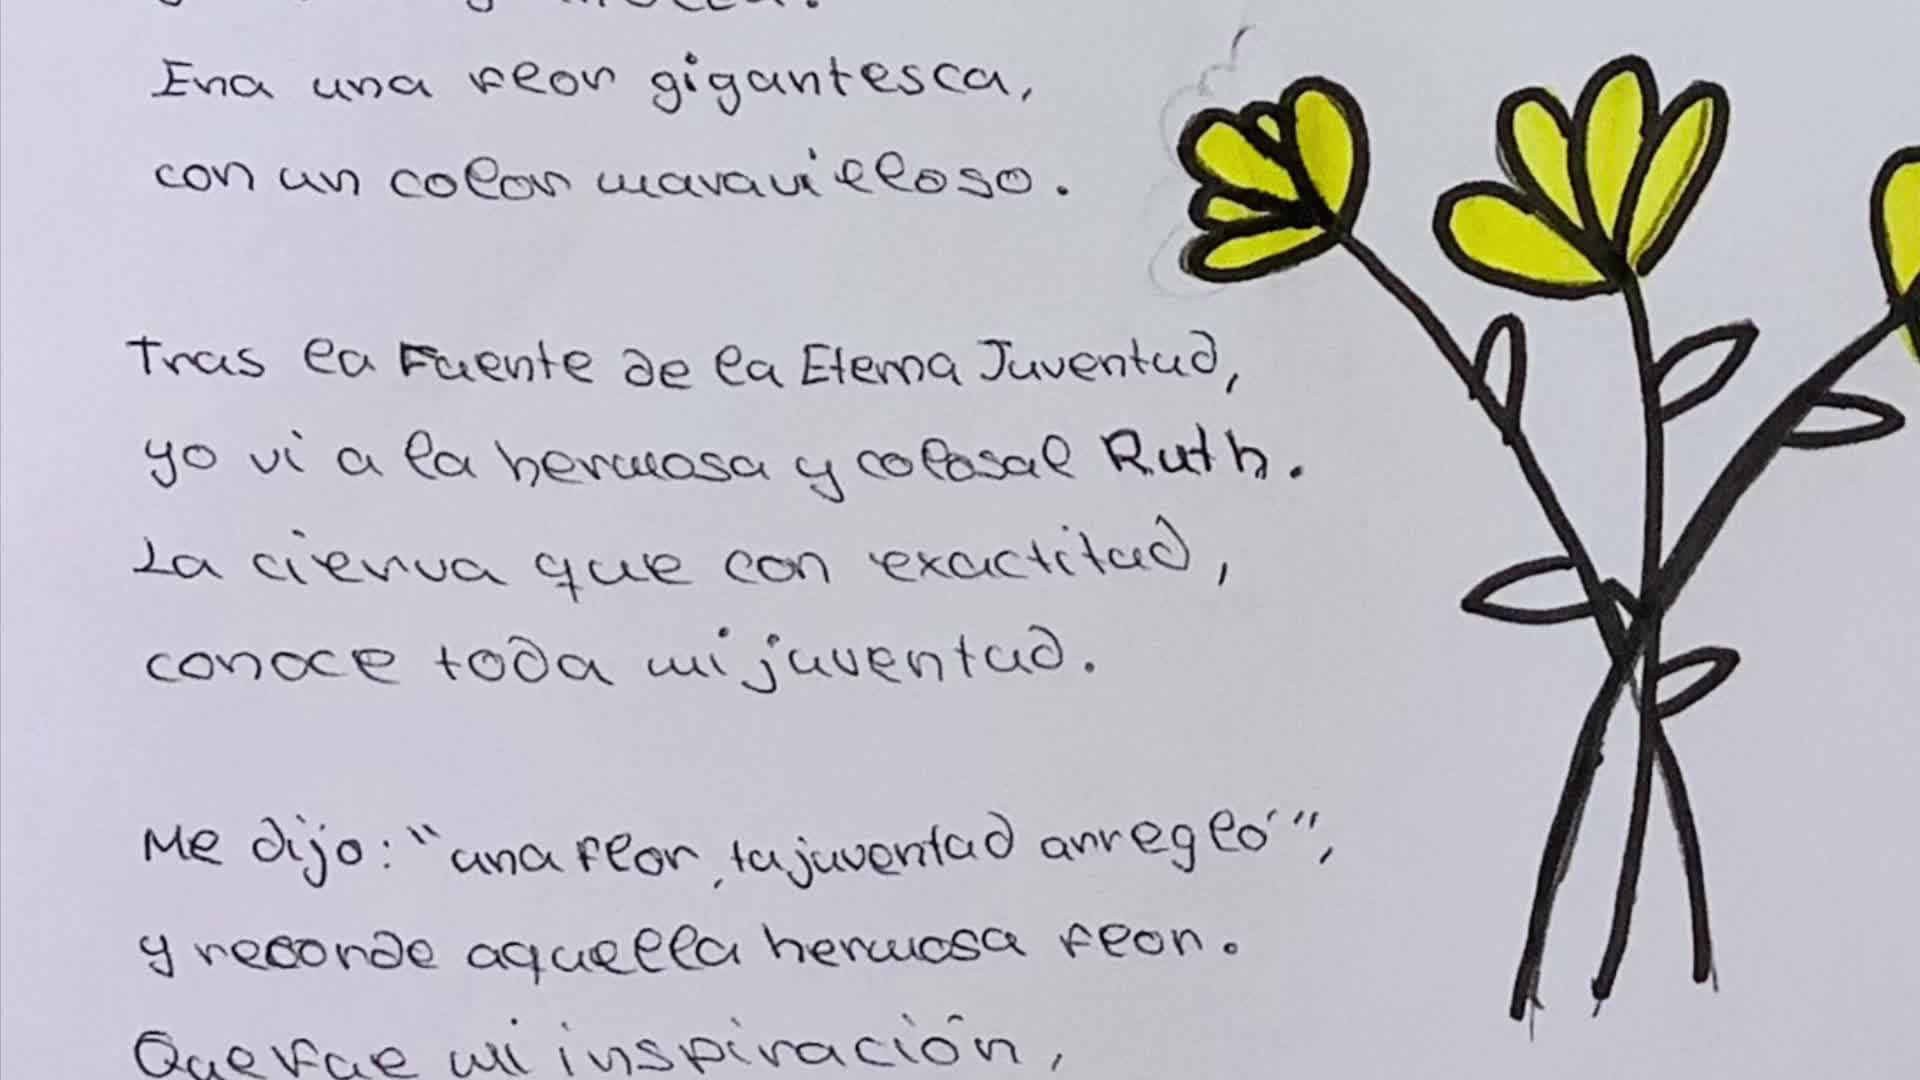 Era una flor gigantesca,
con un color maravilloso.
Tras la Fuente de la Eterna Juventud,
yo vi a la hermosa y colosal Ruth.
La cierva que con exactitud,
conoce toda mi juventud.
Me dijo: "una flor, tu juventud arregló",
y recorde aquella hermosa flor.
Que fue mi inspiración,